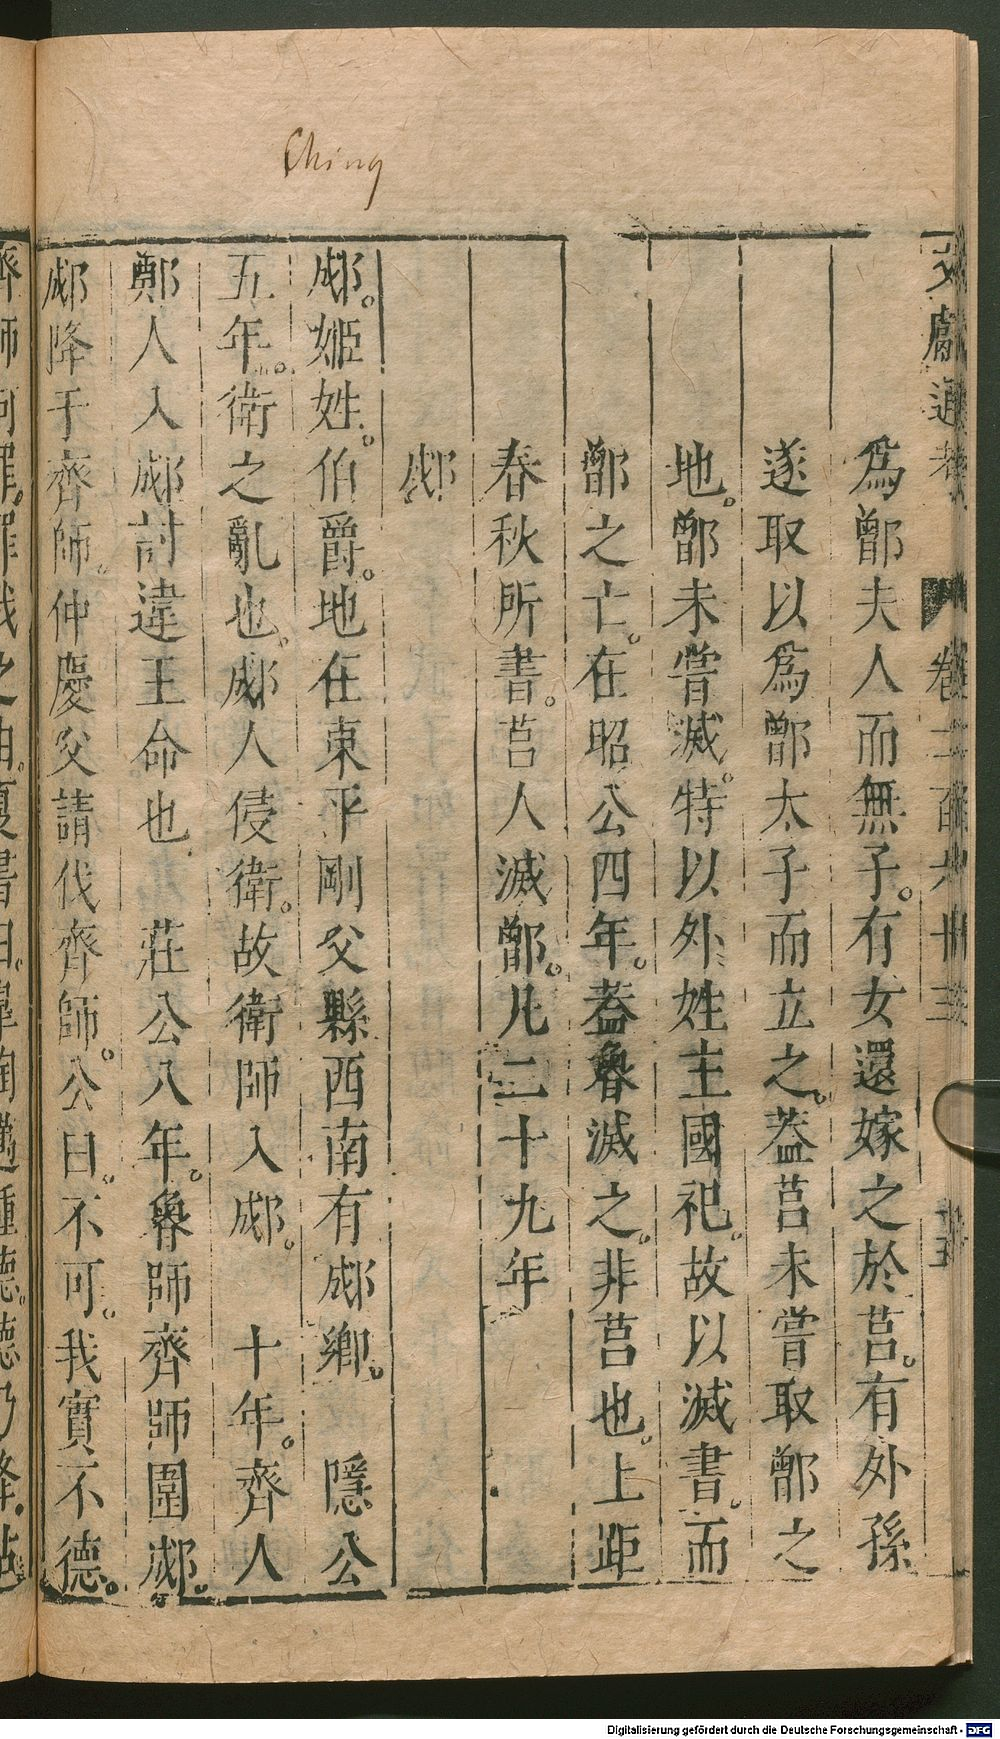 Ching
文獻通考 卷二百六十三 十五
為鄫夫人而無子。有女還嫁之於莒。有外孫
遂取以為鄫太子而立之。葢莒未嘗取鄫之
地。鄫未嘗滅。特以外姓主國祀。故以滅書。而
鄫之亡。在昭公四年。葢魯滅之。非莒也。上距
春秋所書。莒人滅鄫。凡二十九年
郕
郕。姬姓。伯爵。地在東平剛父縣西南有郕鄉。 隱公
五年。衛之亂也。郕人侵衛。故衛師入郕。 十年。齊人
鄭人入郕討違王命也 莊公八年。魯師齊師圍郕。
郕降于齊師。仲慶父請伐齊師。公曰。不可。我實不德。
齊師何罪。罪我之由。夏書曰。臯陶邁種德。德乃降。姑
Digitalisierung gefördert durch die Deutsche Forschungsgemeinschaft - DFG